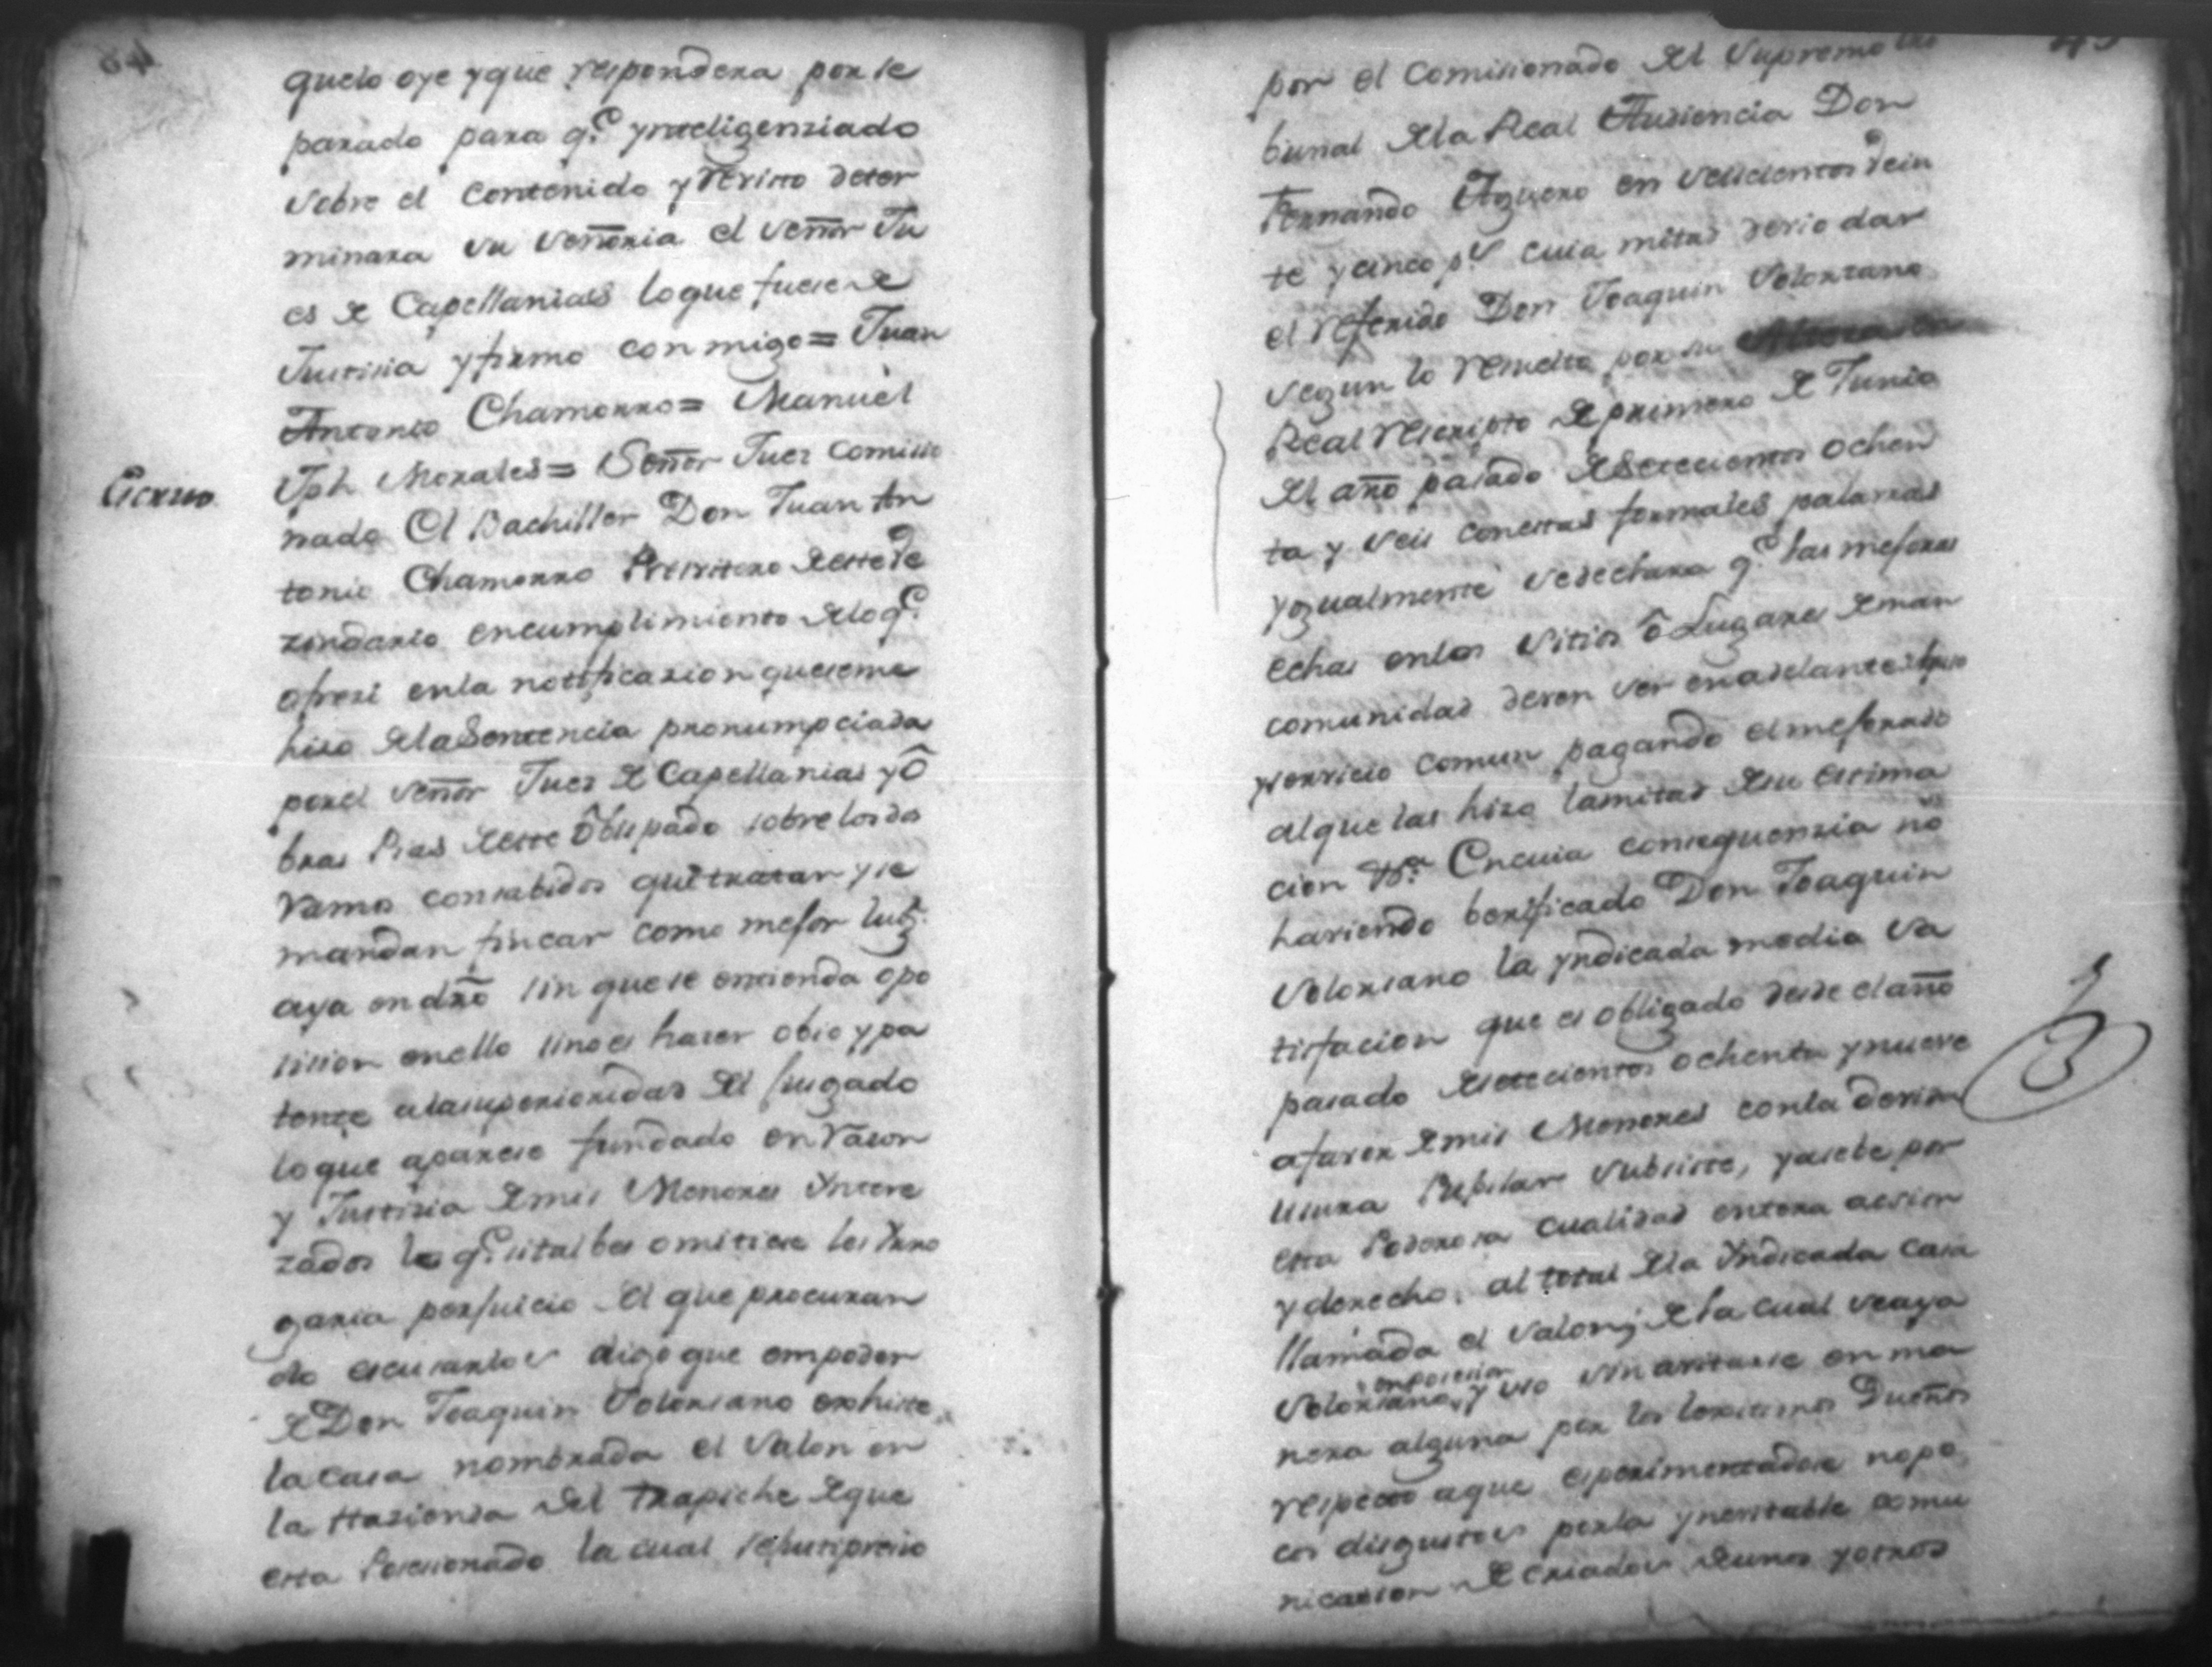 quelo oye y que respondera por se
parado para q.e ynteligensiado
sobre el contenido y Veristo deter
minara su señoria el señor Ju
es de Capellanias lo que fuere de
Justisia y firmo conmigo = Juan
Antonio Chamorro = Manuel
Jph Morales = Señor Jues Comisio
Escrito
nado El Bachiller Don Juan An
tonio Chamorro Presvitero de este ve
zindario en cumplimiento de lo q.e
ofresi en la notificasion que se me
hiso de la Sentencia pronumpciada
por el señor Jues de Capellanias y ô
bras Pias de este ôbispado sobre los dos
Ramos consabidos que tratar y se
mandan fincar como mejor lug.r
aya en dro sin que se entienda opo
sision en ello sino es haser obio y pa
tente a la superioridad del jusgado
lo que aparese fundado en rason
y Justisia de mis Menores Yntere
zados lo q.e si tal bes omitiese les Yrro
garia perjuicio el que procuran
do escusarlos digo que en poder
de Don Joaquin Solorsano exhiste
la casa nombrada el Salon en
la Hazienda del trapiche de que
esta Posesionado la cual se justipresio
por el Comisionado del Supremo tri
bunal de la Real Audiencia Don
Fernando Aguero en seisientos vein
te y cinco p.s cuia mitad devio dar
el referido Don Joaquin Solorzano
segun lo resuelto por su
Real rescripto de primero de Junio
del año pasado de setecientos ochen
ta y seis con estas formales palavras
yg ualmente se declara q.e las mejoras
echas en los sitios ô Lugares de man
comunidad deven ser en adelante de uso
y servicio comun pagando el mejorado
al que las hizo la mitad de su estima
cion En cuia consequensia no
haviendo berificado Don Joaquin
Solorsano la yndicada media sa
tisfacion que es obligado desde el año
pasado de setecientos ochenta y nueve
a favor de mis Menores con la
usura Pupilar subsiste, y se debe por
esta Poderosa cualidad entera acsion
y derecho, al total de la Yndicada casa
llamada el Salon; de la cual se aya
en posesion
Solorsano, y uso sin avitarse en ma
nera alguna por los lexitimos Dueños
respecto a que esperimentadose no po
cos disgustos por la ynevitable comu
nicasion de criados de unos y otros
3